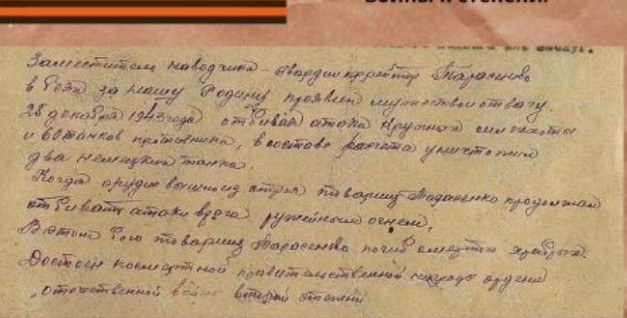 Войны II степени
заслуг.
Заместитель наводчика – гвардии ефрейтор Тарасенко
в боях за нашу Родину проявил мужество и отвагу.
28 декабря 1943 года отбивая атаки крупных сил пехоты
и 60 танков противника, в составе расчета уничтожил
два немецких танка.
Когда орудие вышло из строя товарищ Тарасенко продолжал
отбивать атаки врага ружейным огнем.
В этом бою товарищ Тарасенко погиб смертью храбрых.
Достоин посмертной правительственной награды ордена
„отечественной войны второй степени